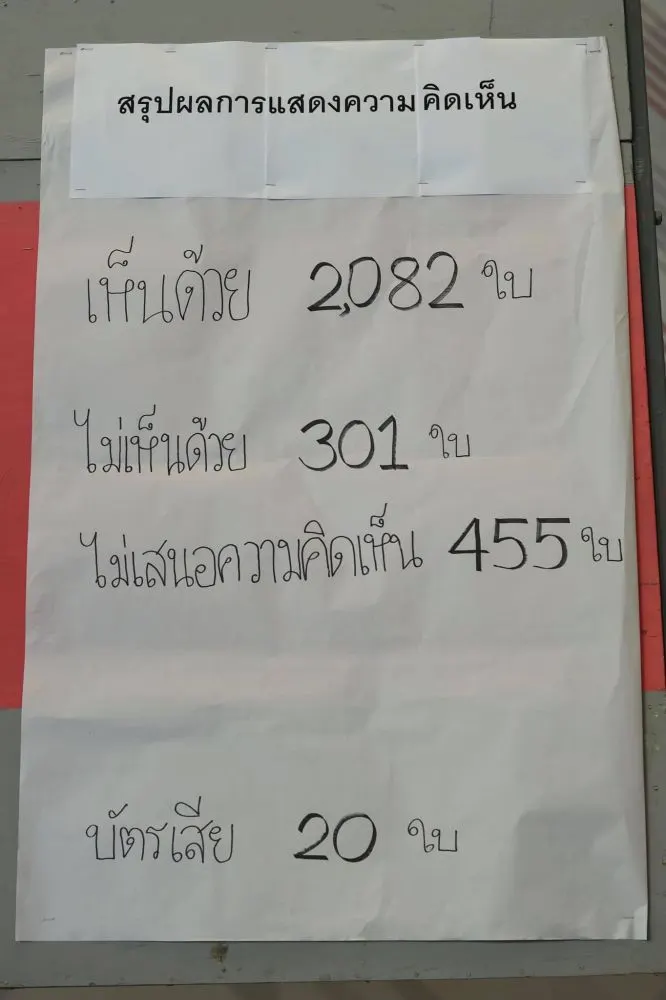 สรุปผลการแสดงความคิดเห็น
เห็นด้วย 2,082 ใบ
ไม่เห็นด้วย 301 ใบ
ไม่เสนอความคิดเห็น 455 ใบ
บัตรเสีย 20 ใบ